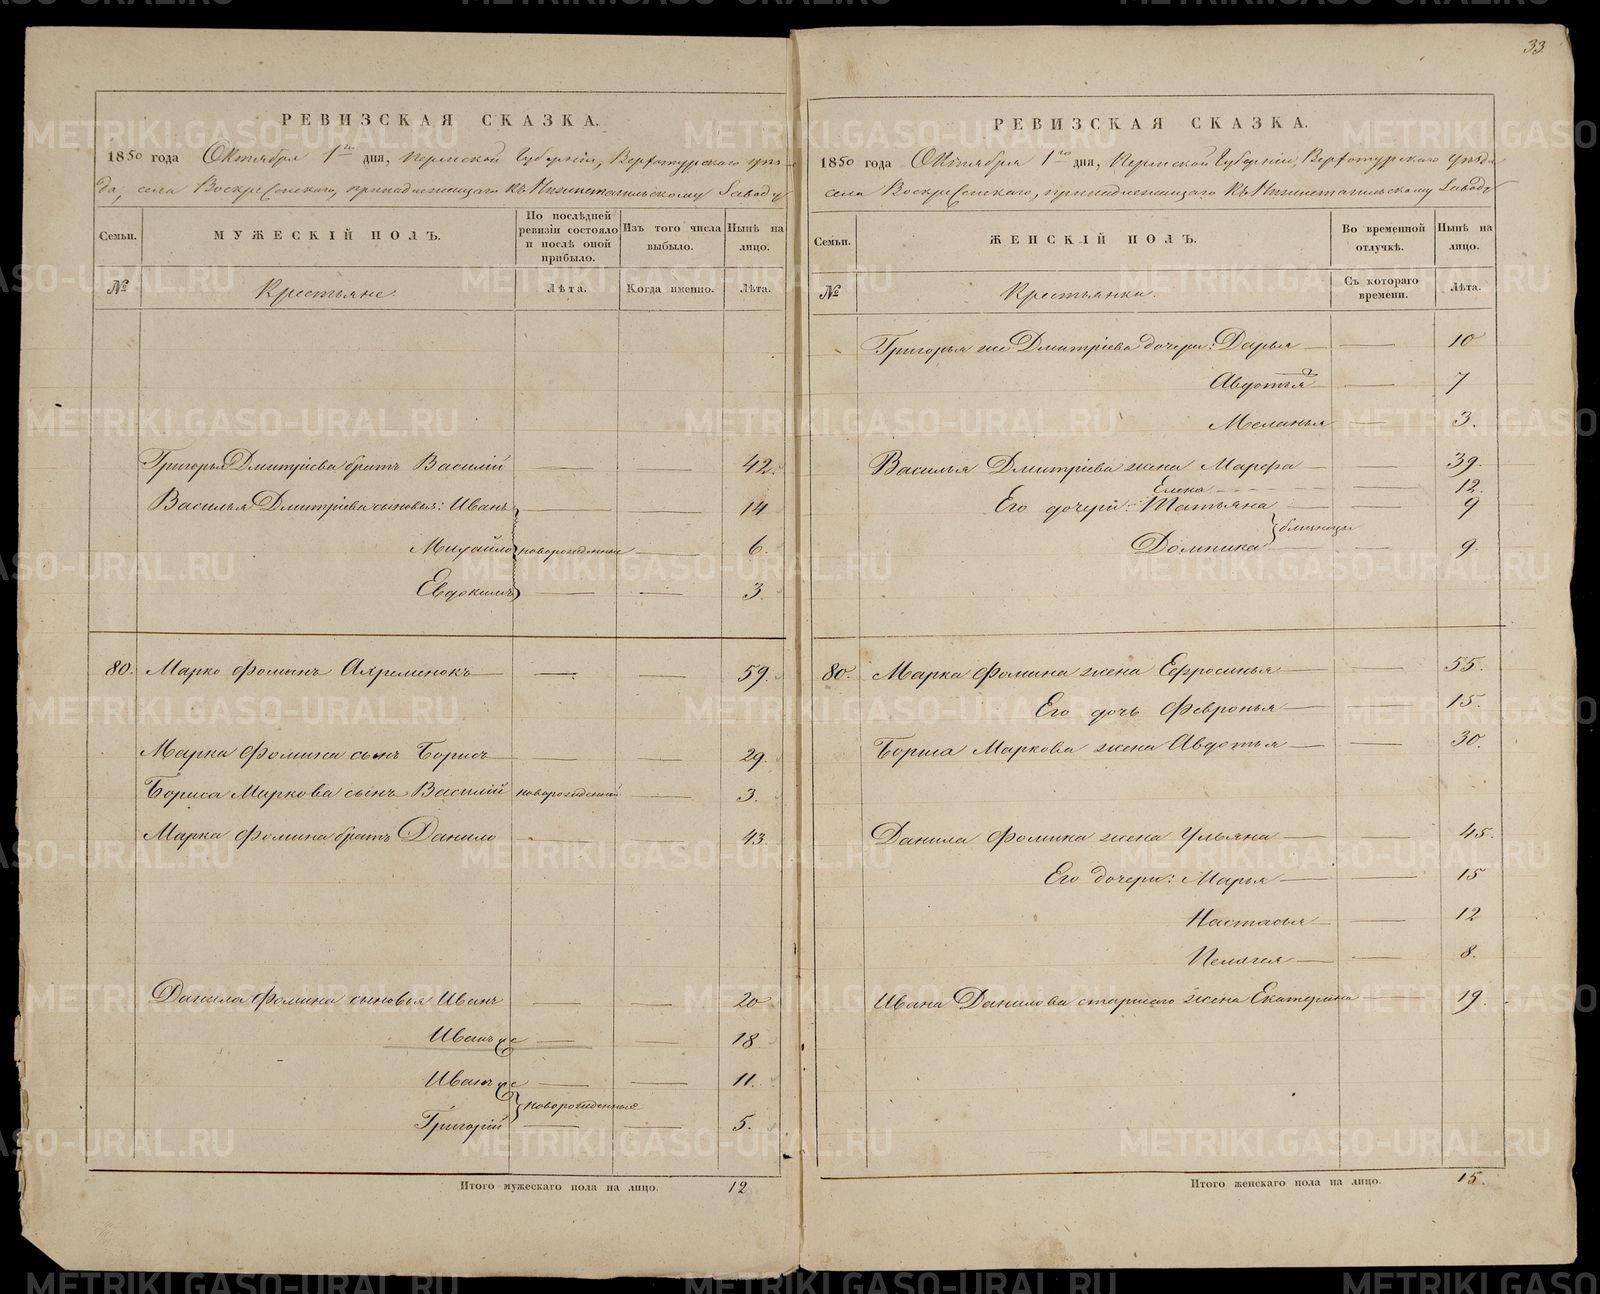 33
РЕВИЗСКАЯ СКАЗКА.
1850 года Октября 1го дня, Пермской Губернии, Верхотурскаго уѣз-
да, села Воскресенскаго, принадлежащаго къ Нижнетагильскому Заводу
Семьи. МУЖЕСКІЙ ПОЛЪ. По послѣдней ревизіи состояло и послѣ оной прибыло. Изъ того числа выбыло. Нынѣ на лицо.
№ Крестьяне. Лѣта. Когда именно. Лѣта.
Григорья Дмитріева братъ Василій 42.
Василья Дмитріева сыновья: Иванъ 14
Михайло новорожденные 6.
Евдокимъ 3.
80. Марко Фоминъ Ахременокъ 59.
Марка Фомина сынъ Борисъ 29.
Бориса Маркова сынъ Василій новорожденный 3.
Марка Фомина братъ Данило 43.
Данила Фомина сыновья Иванъ 20
Иванъ же 18
Иванъ же 11.
новорожденные
Григорій 5.
Итого мужескаго пола на лицо. 12
РЕВИЗСКАЯ СКАЗКА.
1850 года Октября 1го дня, Пермской Губерніи, Верхотурскаго уѣзда
села Воскресенскаго, принадлежащаго къ Нижнетагильскому Заводу
Семьи. ЖЕНСКІЙ ПОЛЪ. Во временной отлучкѣ. Нынѣ на лицо.
№ Крестьянки. Съ котораго времени. Лѣта.
Григорья же Дмитріева дочери: Дарья 10
Авдотья 7
Меланья 3.
Василья Дмитріева жена Марфа 39.
Елена 12.
Его дочери: Татьяна 9
близнецы
Домника 9.
80. Марка Фомина жена Ефросинья 55.
Его дочь Февронья 15.
Бориса Маркова жена Авдотья 30.
Данила Фомина жена Ульяна 45.
Его дочери: Марья 15
Настасья 12
Пелагея 8.
Ивана Данилова старшаго жена Екатерина 19.
Итого женскаго пола на лицо. 15.
METRIKI.GASO-URAL.RU